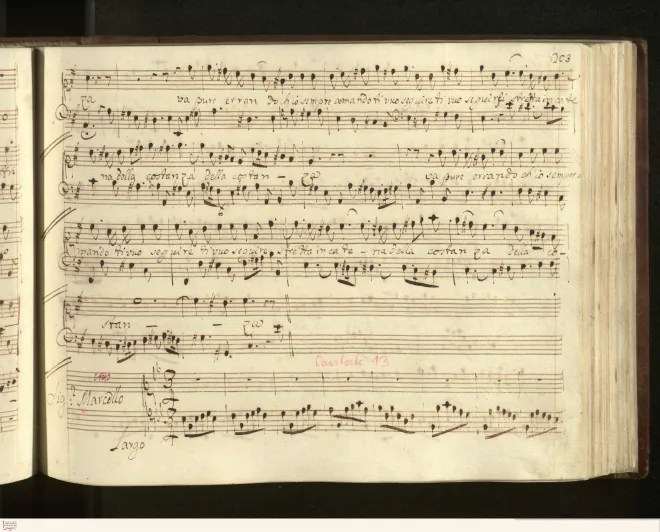 203
za va pure erran do ch'io sempre amando ti vuo seguire ti vuo seguire stretta in cate
na della costanza della costan - za va pure errando ch'io sempre a
mando ti vuo seguire ti vuo seguire stretto in cate - na della costan za della co-
stan - - za
Cantate 13
Marcello
Largo